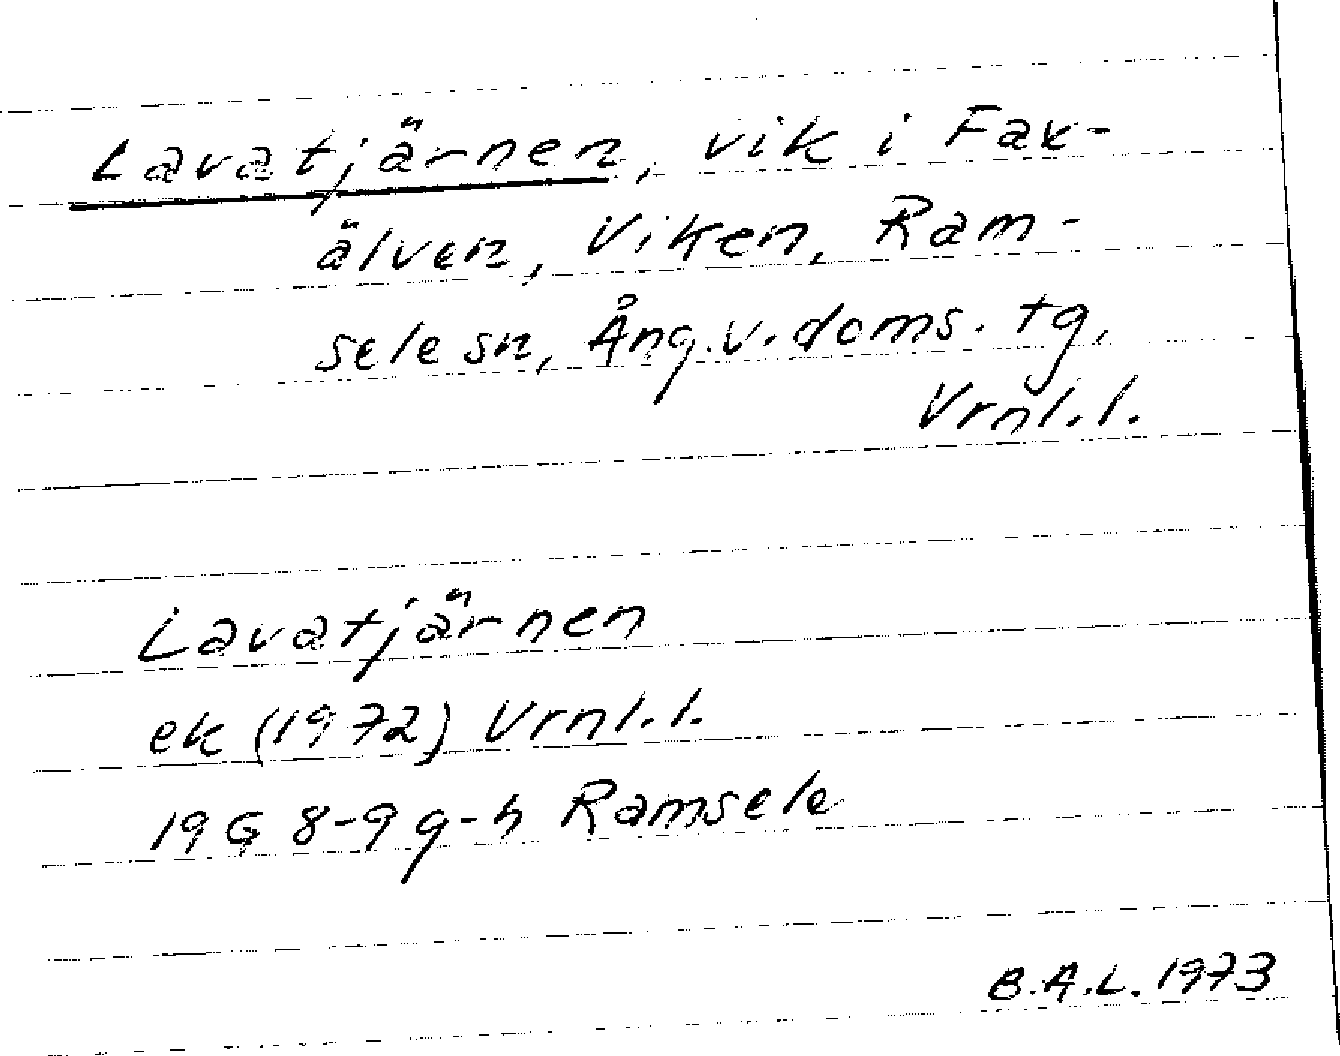 Lavatjärnen, vik i Fax-
älven, Viken, Ram-
sele sn, Ång.v.doms. tg,
Vrnl.l.
Lavatjärnen
ek (1972) Vrnl.l.
19G 8-9 g-h Ramsele
B.A.L. 1973